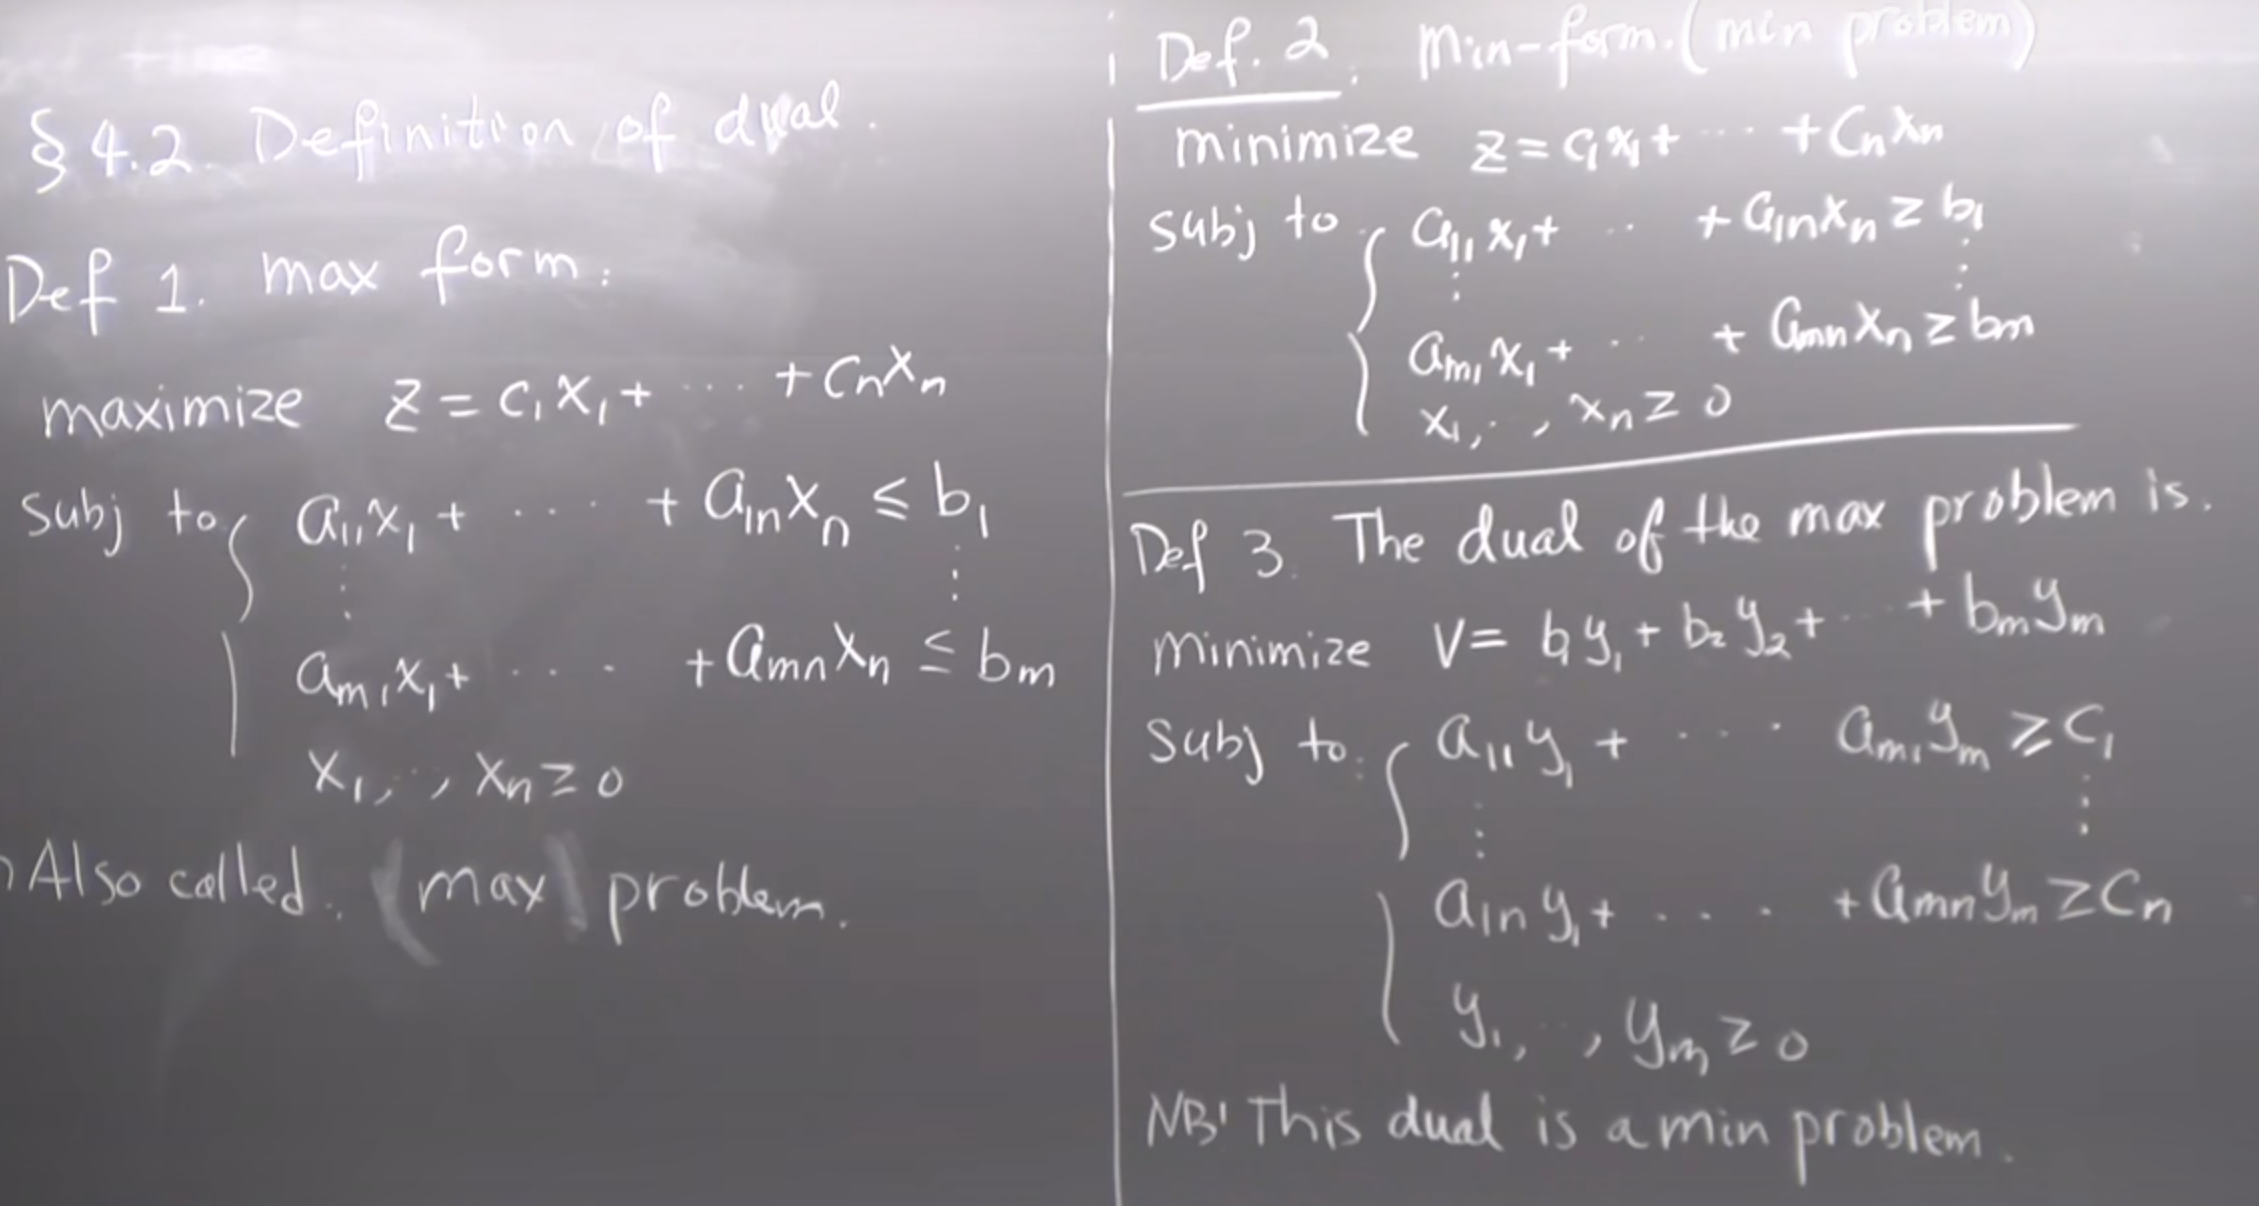 § 4.2. Definition of dual.
Def 1. max form:
maximize z = c₁x₁ + ··· + cₙxₙ
Subj to { a₁₁x₁ + ··· + a₁ₙxₙ ≤ b₁
⋮ ⋮
aₘ₁x₁ + ··· + aₘₙxₙ ≤ bₘ
x₁, ·, xₙ ≥ 0
Also called. (max) problem.
Def. 2. Min-form. (min problem)
minimize z = c₁x₁ + ··· + cₙxₙ
subj to { a₁₁x₁ + ·· + a₁ₙxₙ ≥ b₁
⋮ ⋮
aₘ₁x₁ + ·· + aₘₙxₙ ≥ bₘ
x₁, ·, xₙ ≥ 0
Def 3. The dual of the max problem is.
minimize V = b₁y₁ + b₂y₂ + ··· + bₘyₘ
Subj to: { a₁₁y₁ + ··· aₘ₁yₘ ≥ c₁
⋮ ⋮
a₁ₙy₁ + ··· + aₘₙyₘ ≥ cₙ
y₁, ··, yₘ ≥ 0
NB! This dual is a min problem.